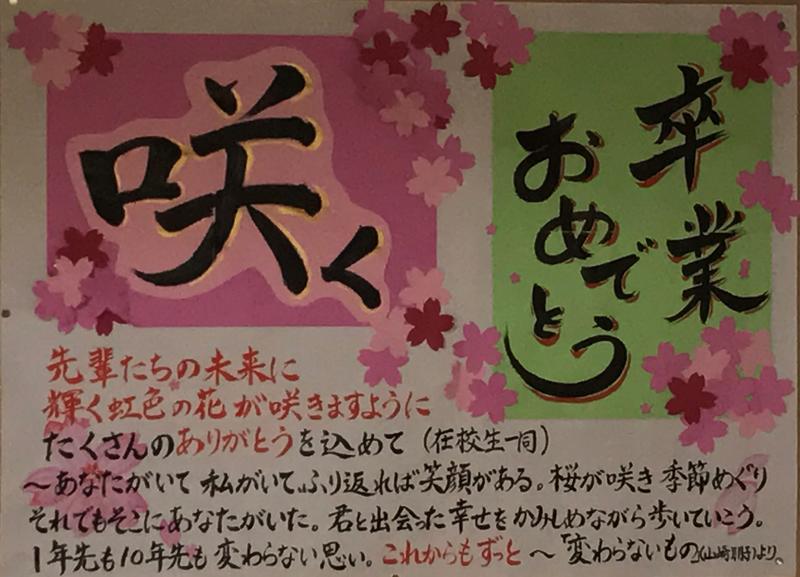 咲く
卒業
おめでとう
先輩たちの未来に
輝く虹色の花が咲きますように
たくさんのありがとうを込めて(在校生一同)
～あなたがいて 私がいて。ふり返れば笑顔がある。桜が咲き 季節めぐり
それでもそこにあなたがいた。君と出会った幸せをかみしめながら歩いていこう。
1年先も10年先も変わらない思い。これからもずっと～「変わらないもの」(山崎朋子)より。